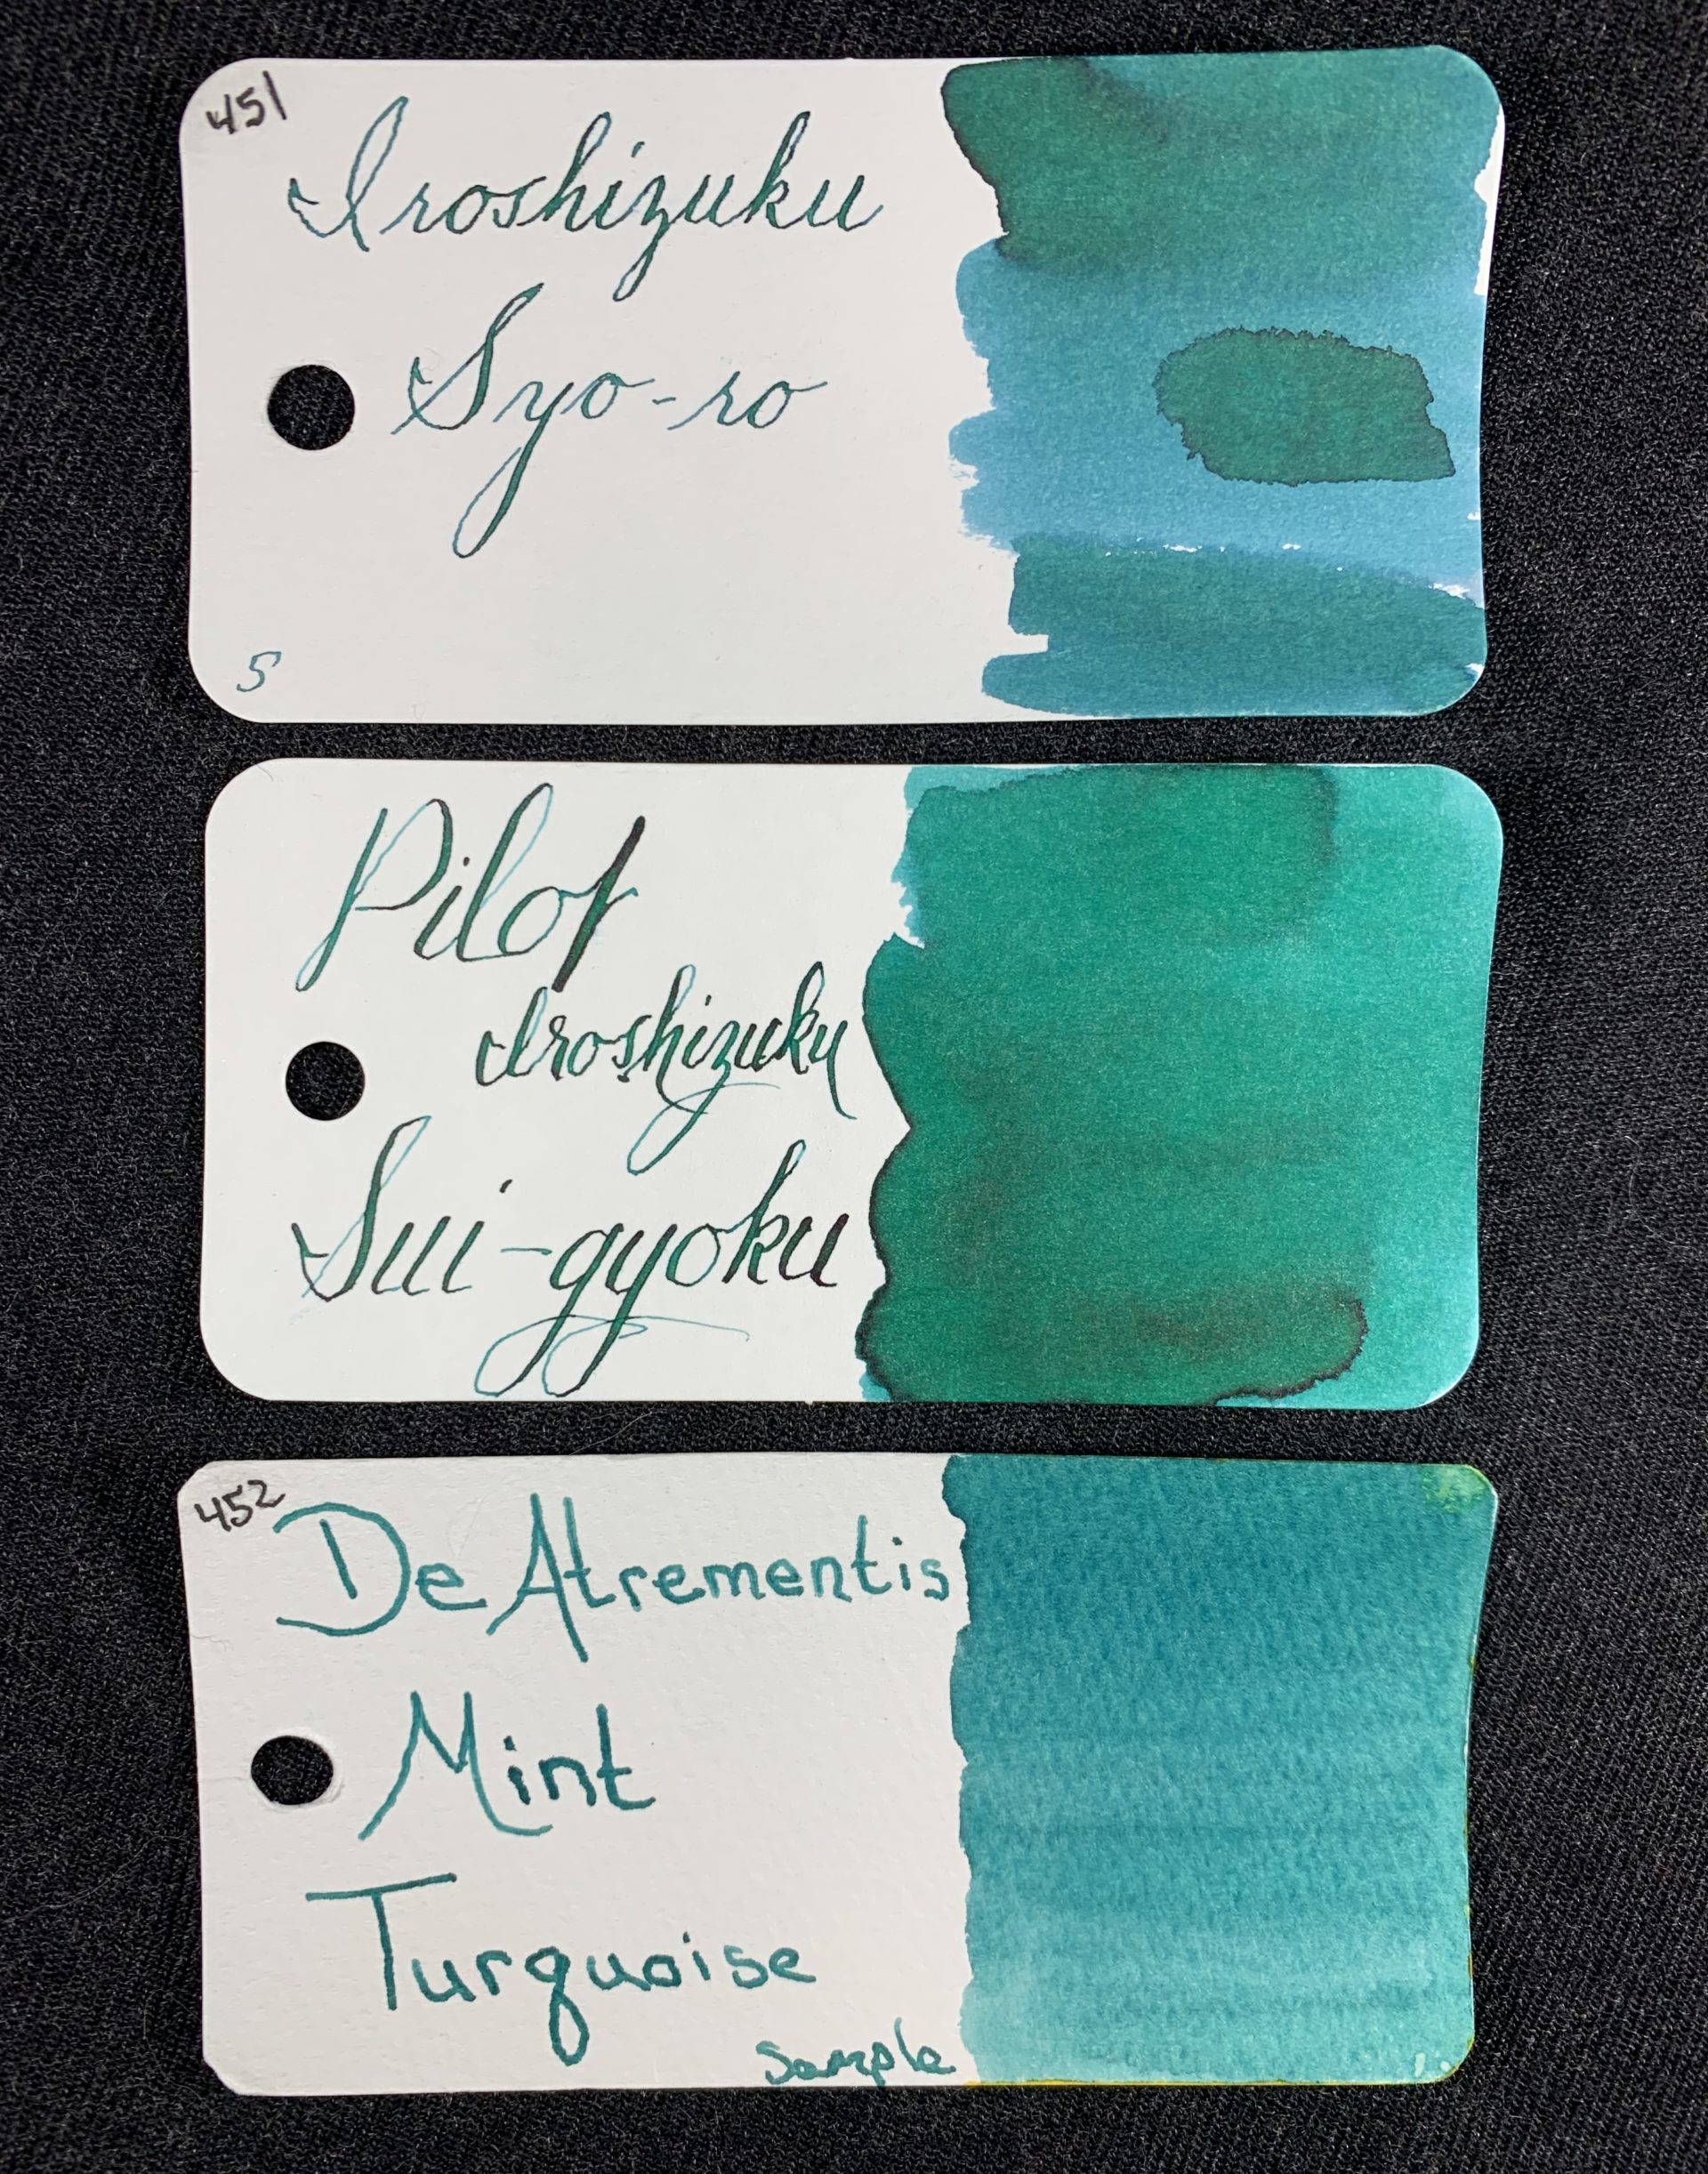 451
Iroshizuku
Syo-ro
S
Pilot
Iroshizuku
Sui-gyoku
452
De Atrementis
Mint
Turquoise
Sample